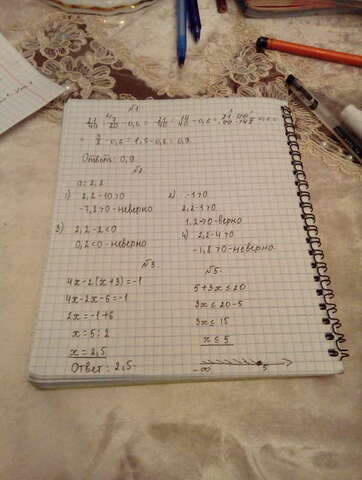 №1
= 3/2 · 0,6 = 1,5 · 0,6 = 0,9
Ответ: 0,9
№2
a = 2,2
1) 2,2-10>0
-7,8>0-неверно
2) -1>0
2,2-1>0
1,2>0-верно
3) 2,2-2<0
0,2<0-неверно
4) 2,2-4>0
-1,8>0-неверно
№3
4x-2(x+3)=-1
4x-2x-6=-1
2x=-1+6
x=5:2
x=2,5
Ответ: 2,5
№5
5+3x≤20
3x≤20-5
3x≤15
x≤5
-∞ 5